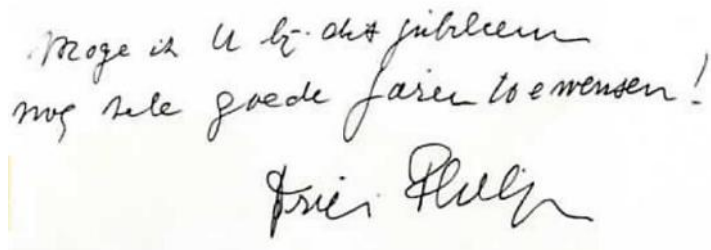 Moge ik U bij dit jubileum
nog vele goede jaren toewensen!
Frits Philips